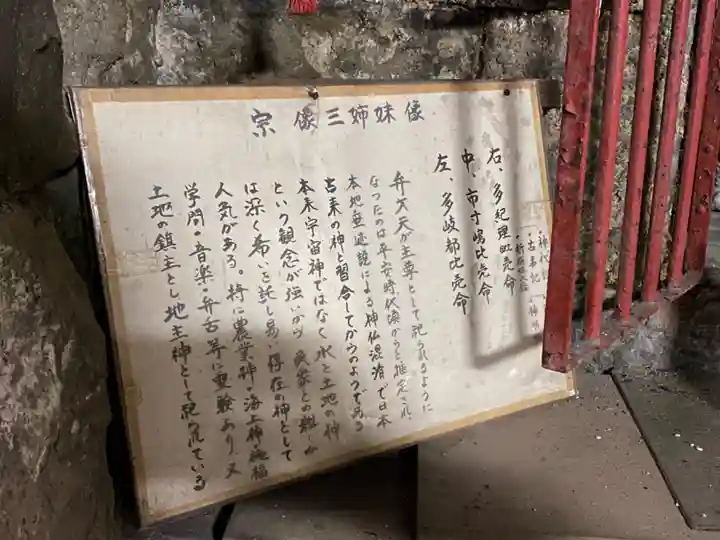 宗像三姉妹像
神代
古事記
右、多紀理毗売命
中、市寸嶋比売命
左、多岐都比売命
弁才天が主尊として祀られるように
なったのは平安時代頃からと推定され、
本地垂迹説による神仏混淆で日本
古来の神と習合してからのようである
本来宇宙神ではなく水と土地の神
という観念が強いから
は深く希いを託し易い存在の神として
人気がある。特に農業神・海上神・施福
学問・音楽・弁舌等に霊験あり、又
土地の鎮主とし地主神として祀られている